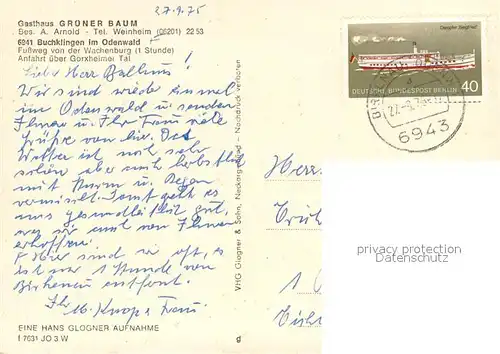 27.9.75
Gasthaus GRÜNER BAUM
Bes. A. Arnold - Tel. Weinheim (06201) 22 53
6941 Buchklingen im Odenwald
Fußweg von der Wachenburg (1 Stunde)
Anfahrt über Gorxheimer Tal
Liebe Herr !
Wir sind wieder einmal
im Odenwald u. senden
Ihnen u. Ihr Frau viele
Grüße von hier. Das
Wetter ist noch sehr
schön aber auch herbstlich
mit Sturm u. Regen
vermischt. Sonst geht es
uns gesundheitlich gut,
was wir auch von Ihnen
erhoffen.
Hier sind wir oft, es
ist nur 1 Stunde von
Birkenau entfernt.
Ihr M. Knop u. Frau
EINE HANS GLOGNER AUFNAHME
f 7631 JO 3 W
g
VHG Glogner & Sohn, Neckargemünd - Nachdruck verboten
Dampfer Siegfried
DEUTSCHE BUNDESPOST BERLIN 40
6943
Herrn
privacy protection
Datenschutz